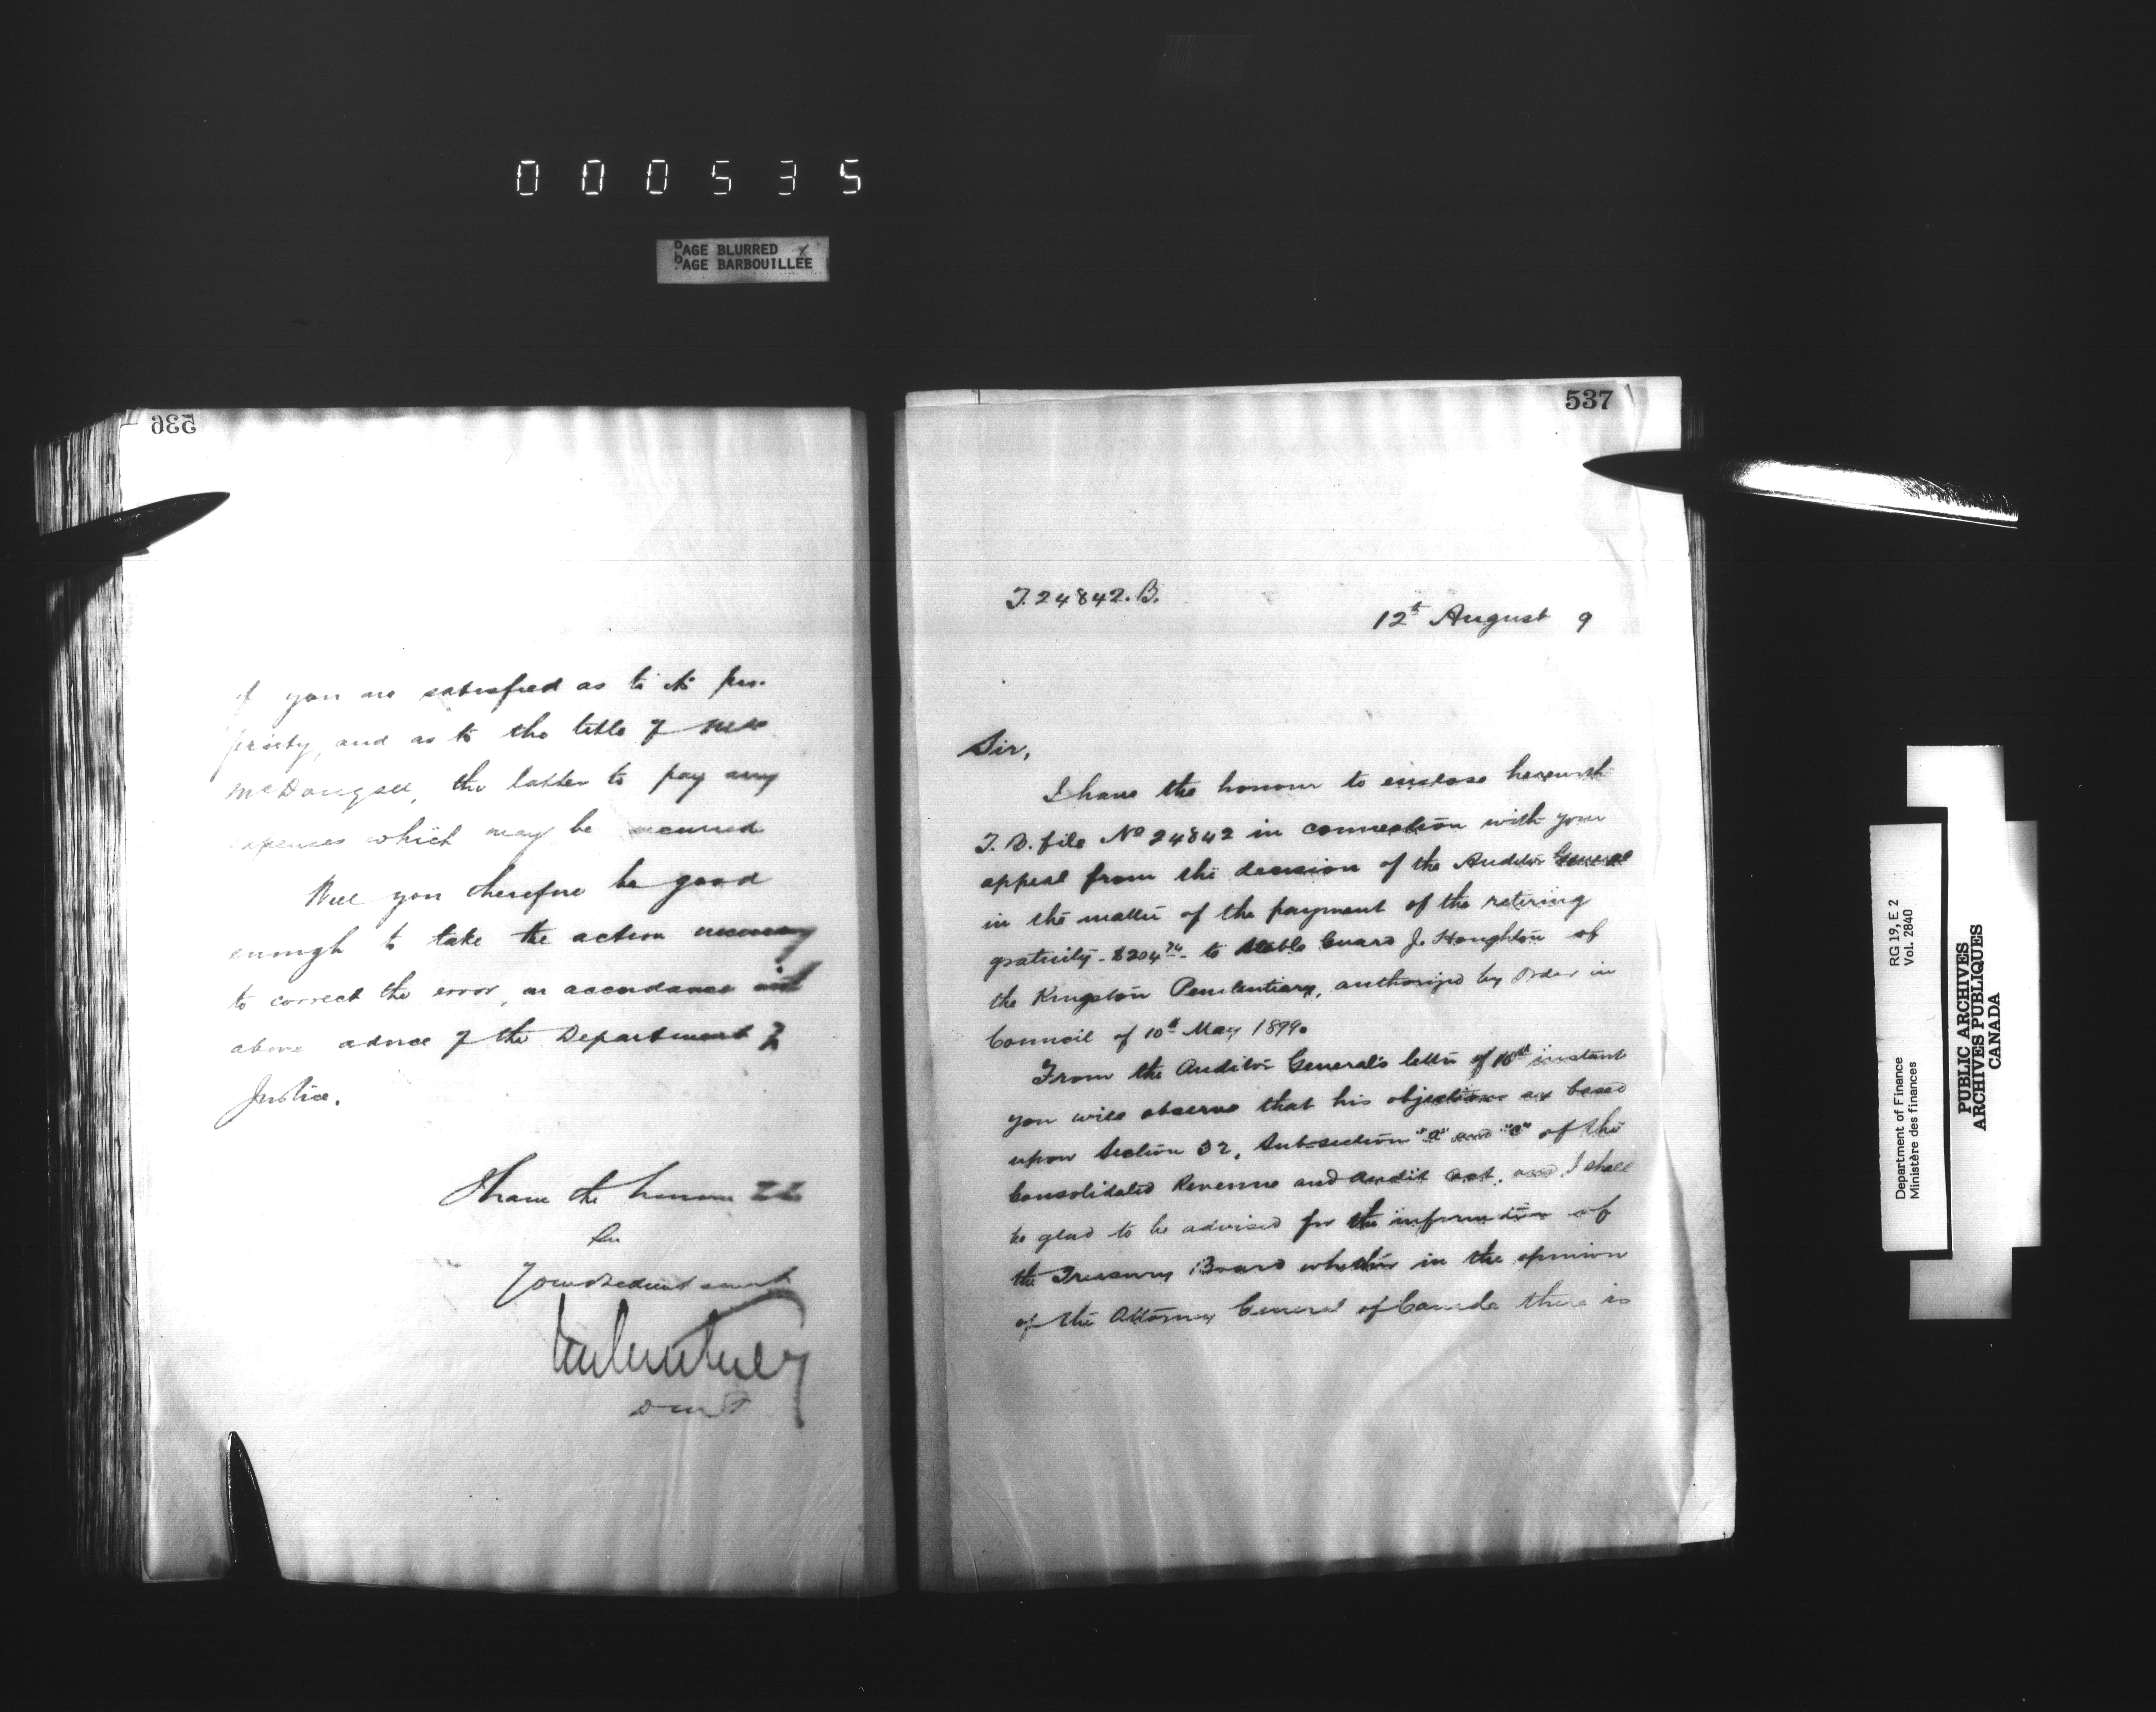 000535
PAGE BLURRED
PAGE BARBOUILLÉE
536
if you are satisfied as to its pro-
priety, and as to the title of
McDougall, the latter to pay any
expenses which may be incurred
Will you therefore be good
enough to take the action necessary
to correct the error, in accordance with
above advice of the Department of
Justice.
I have the honour
Sir
Your obedient servant
537
T. 24842. B.
12th August 9
Sir,
I have the honour to enclose herewith
T. B. file No 24842 in connection with your
appeal from the decision of the Auditor General
in the matter of the payment of the retiring
gratuity - $204.74 - to Stable Guard J. Houghton of
the Kingston Penitentiary, authorized by Order in
Council of 10th May 1899.
From the Auditor General's letter of 10th instant
you will observe that his objections are based
upon Section 32, Sub-section "a" and "c" of the
Consolidated Revenue and Audit Act, and I shall
be glad to be advised for the information of
the Treasury Board whether in the opinion
of the Attorney General of Canada there is
Department of Finance
Ministère des finances
RG 19, E 2
Vol. 2840
PUBLIC ARCHIVES
ARCHIVES PUBLIQUES
CANADA